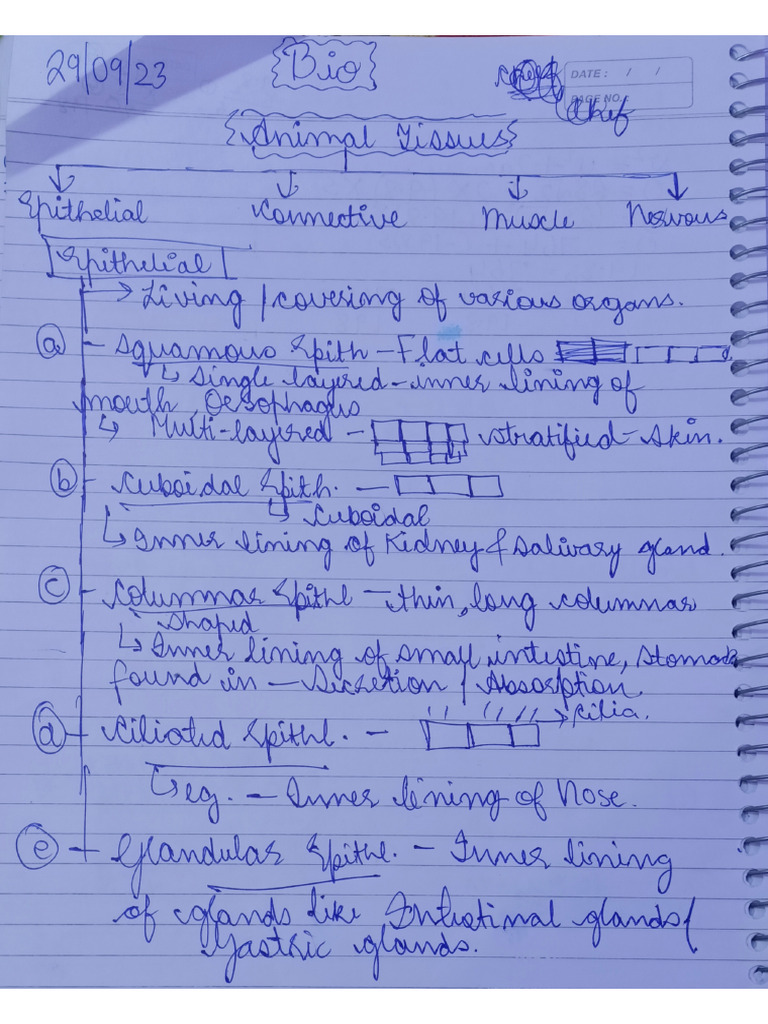 29/09/23
Bio
DATE: / /
PAGE NO.
Chef
Animal Tissues
Epithelial Connective Muscle Nervous
Epithelial
→ Living / covering of various organs.
(a) - Squamous Epith - Flat cells
↳ Single layered - inner lining of
mouth, Oesophagus
↳ Multi-layered - stratified - skin.
(b) - Cuboidal Epith. -
↳ Cuboidal
↳ Inner lining of Kidney & Salivary gland.
(c) - Columnar Epithl - thin, long columnar
shaped
↳ Inner lining of small intestine, stomach
found in - Secretion / Absorption.
(d) - Ciliated Epithl. - → cilia.
↳ eg. - Inner lining of Nose.
(e) - Glandular Epithl. - Inner lining
of glands like Intestinal glands /
Gastric glands.